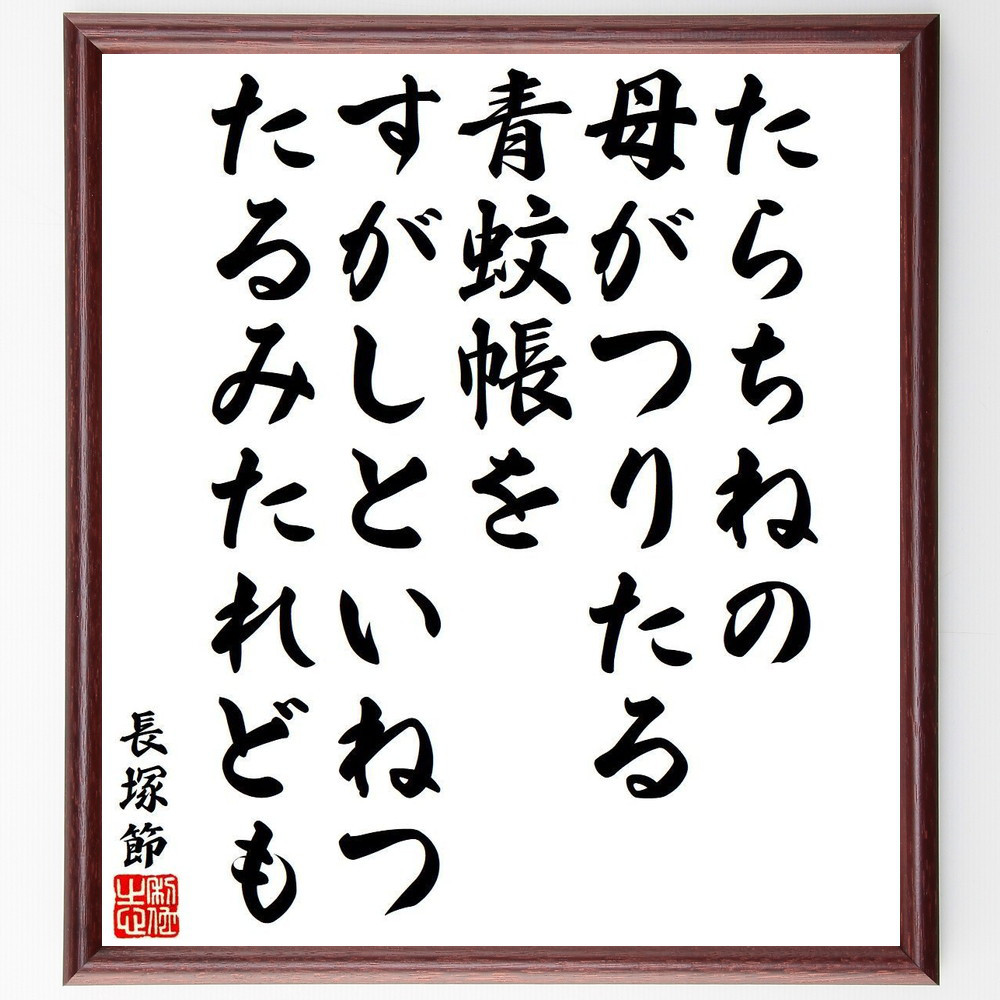 たらちねの
母がつりたる
青蚊帳を
すがしといねつ
たるみたれども
長塚節